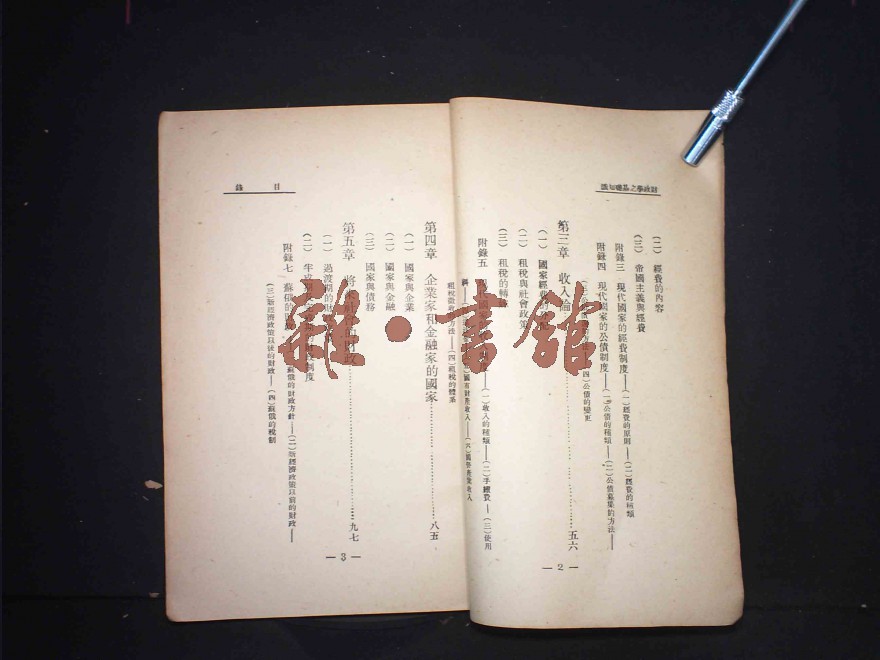 財政學之基礎知識
(二) 經費的內容
(三) 帝國主義與經費
附錄三 現代國家的經費制度——(一)經費的原則——(二)經費的種類
附錄四 現代國家的公債制度——(一)公債的種類——(二)公債募集的方法——
(四)公債的變更
第三章 收入論 五六
(一) 國家經費
(二) 租稅與社會政策
(三) 租稅的轉
附錄五 現代國家——(一)收入的種類——(二)手續費——(三)使用
國有財產收入——(六)國營產業收入
— 2 —
目錄
租稅徵收的方法——(四)租稅的體系
第四章 企業家和金融家的國家 八五
(一) 國家與企業
(二) 國家與金融
(三) 國家與債務
第五章 將來社會的財政 九七
(一) 過渡期的財
(二) 制度
附錄七 蘇俄的財政——蘇俄的財政方針——(二)新經濟政策以前的財政——
(三)新經濟政策以後的財政——(四)蘇俄的稅制
— 3 —
雜·書館